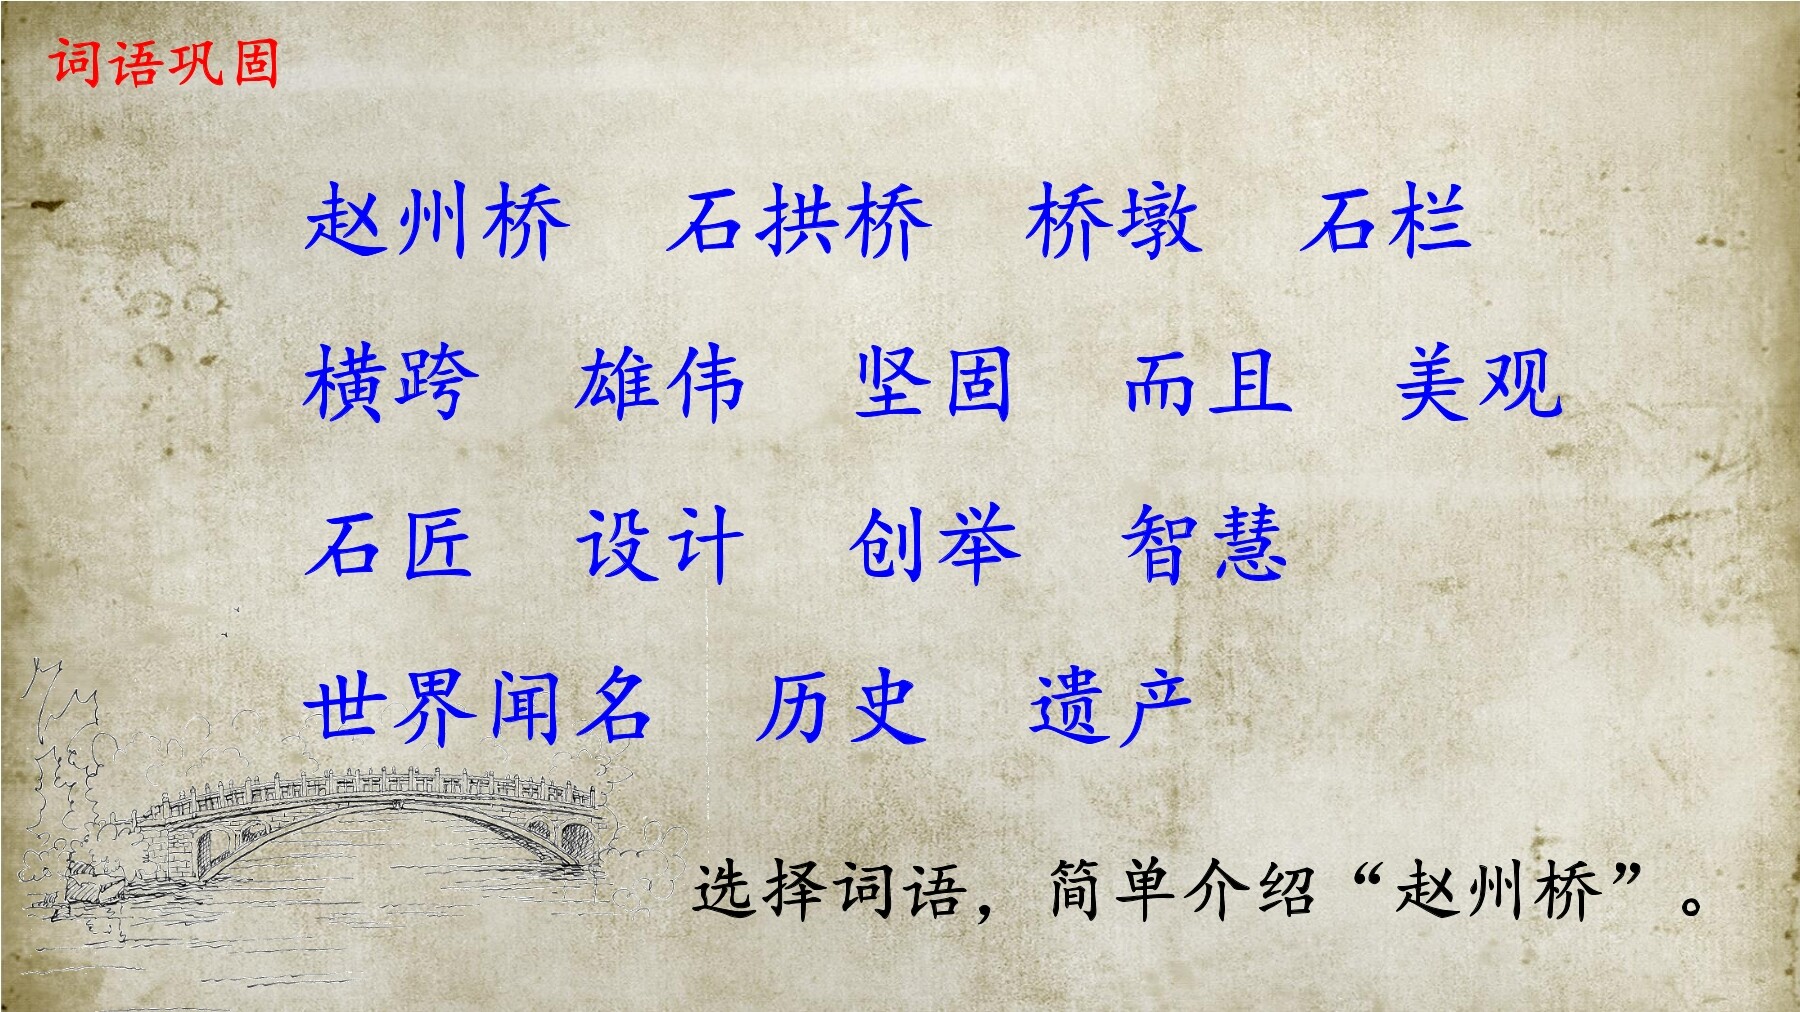 词语巩固
赵州桥 石拱桥 桥墩 石栏
横跨 雄伟 坚固 而且 美观
石匠 设计 创举 智慧
世界闻名 历史 遗产
选择词语，简单介绍“赵州桥”。